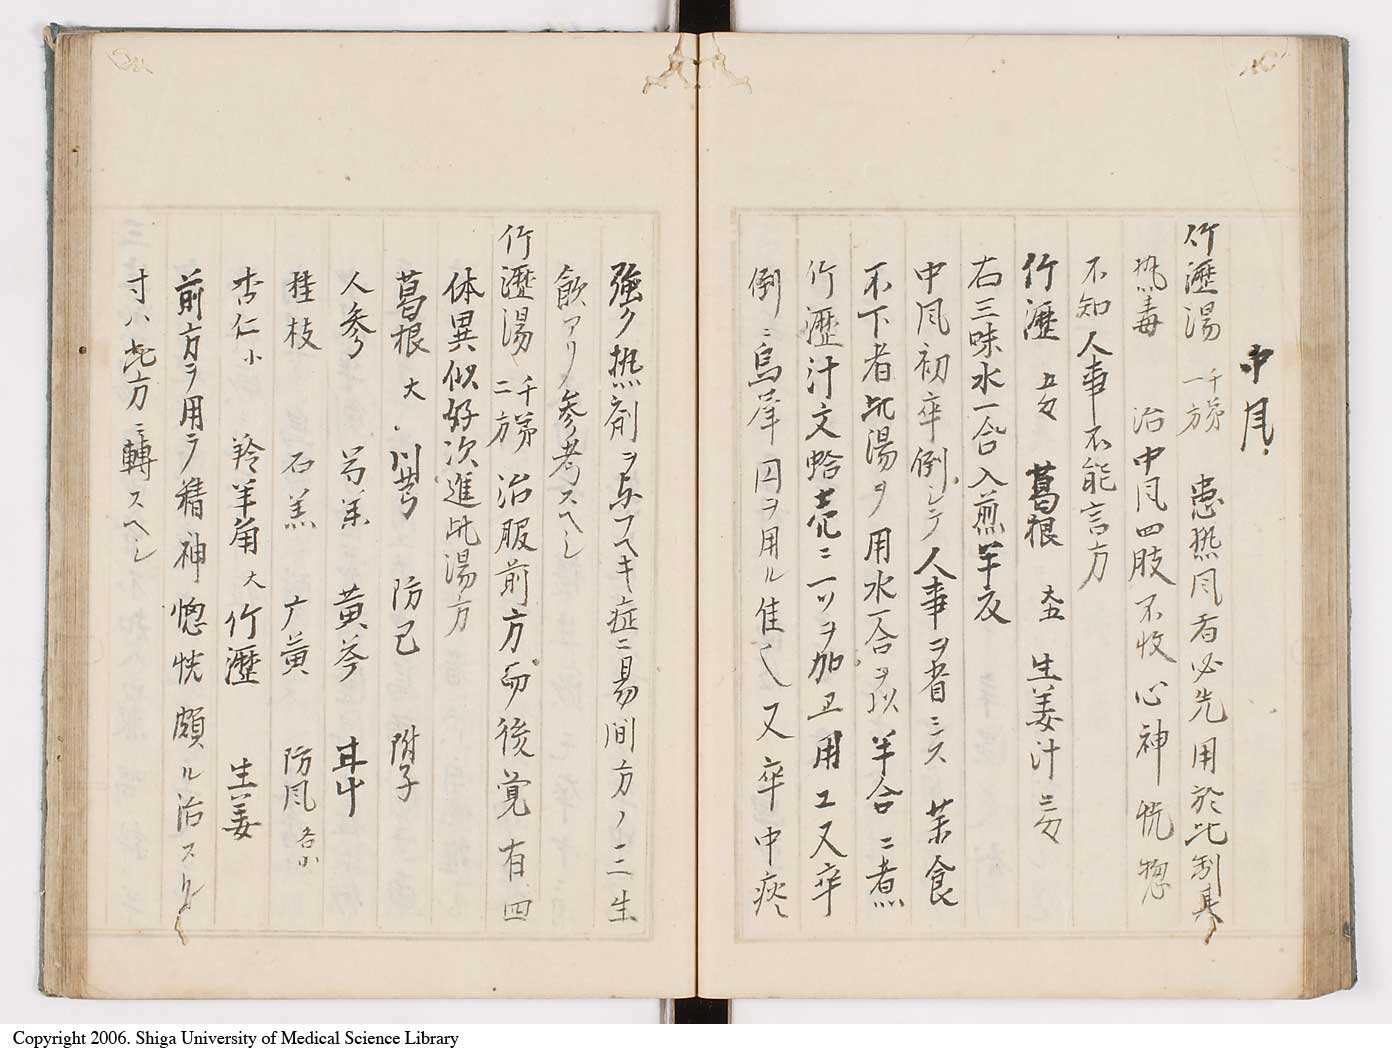 中風
竹瀝湯 千第一方 患熱風者必先用於此制其
热毒 治中風四肢不收心神恍惚
不知人事不能言方
竹瀝 五分 葛根 大五 生姜汁 三分
右三味水一合入煎半夜
中風初卒倒レテ人事ヲ省ミス 茶食
不下者此湯ヲ用水一合ヲ以半合ニ煮
竹瀝汁文蛤壳ニ一ツヲ加工用工又卒
倒ニ烏犀円ヲ用ル佳シ又卒中痰
強ク热剤ヲ与フヘキ症ニ易简方ノ三生
飲アリ参考スヘシ
竹瀝湯 千第二方 治服前方的後覚有四
体異似好次進此湯方
葛根 大 川芎 防已 附子
人参 芍薬 黄芩 甘艸
桂枝 石羔 广黄 防風 各小
杏仁 小 羚羊角 大 竹瀝 生姜
前方ヲ用テ精神惚恍頗ル治スル
寸ハ此方ニ轉スヘシ
Copyright 2006. Shiga University of Medical Science Library